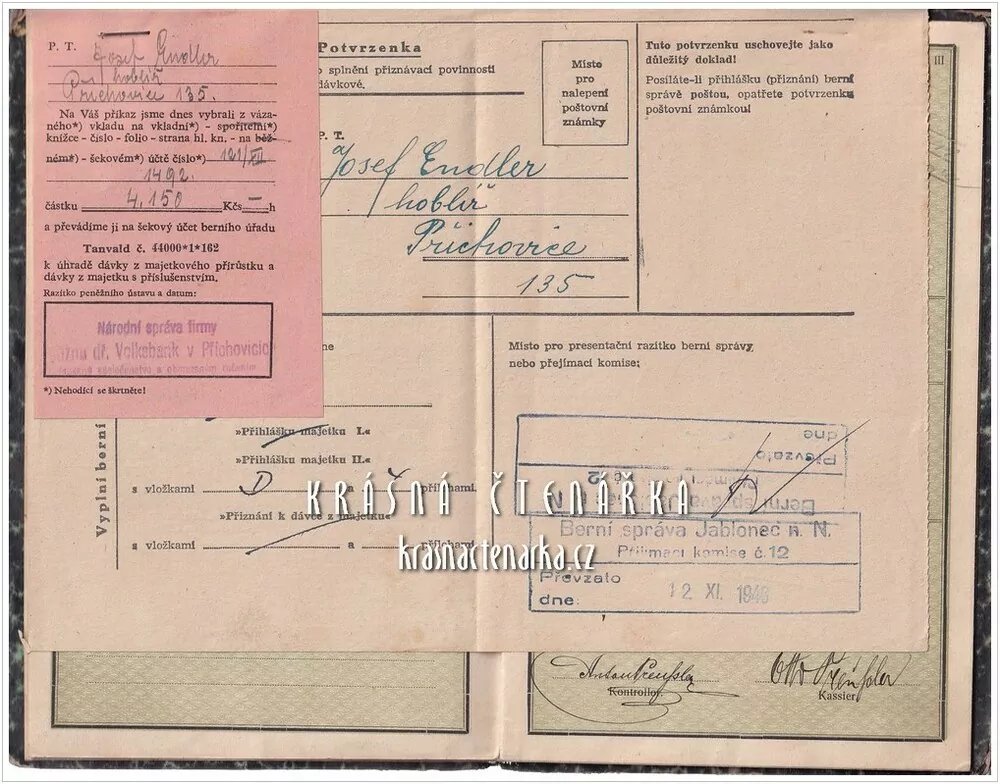 P. T. Josef Endler
hoblíř
Příchovice 135.
Na Váš příkaz jsme dnes vybrali z váza-
ného*) vkladu na vkladní*) - spořitelní*)
knížce - číslo - folio - strana hl. kn. - na běž-
ném*) - šekovém*) účtě číslo*) 121/VII
1492.
částku 4.150 Kčs — h
a převádíme ji na šekový účet berního úřadu
Tanvald č. 44000*1*162
k úhradě dávky z majetkového přírůstku a
dávky z majetku s příslušenstvím.
Razítko peněžního ústavu a datum:
Národní správa firmy
dř. Volksbank v Příchovicích
*) Nehodící se škrtněte!
Potvrzenka
o splnění přiznávací povinnosti
dávkové.
P. T.
Josef Endler
hoblíř
Příchovice
135
Místo
pro
nalepení
poštovní
známky
Tuto potvrzenku uschovejte jako
důležitý doklad!
Posíláte-li přihlášku (přiznání) berní
správě poštou, opatřete potvrzenku
poštovní známkou!
III
ne
Vyplní berní
»Přihlášku majetku I.«
»Přihlášku majetku II.«
s vložkami D a 4 přílohami.
»Přiznání k dávce z majetku«
s vložkami a přílohami
Místo pro presentační razítko berní správy
nebo přejímací komise:
Převzato
dne
Berní správa Jablonec n. N.
Přijímací komise č. 12
Převzato
dne: 12 XI. 1946
KRÁSNÁ ČTENÁŘKA
krasnactenarka.cz
Anton Preußler
Kontrollor
Otto Preußler
Kassier